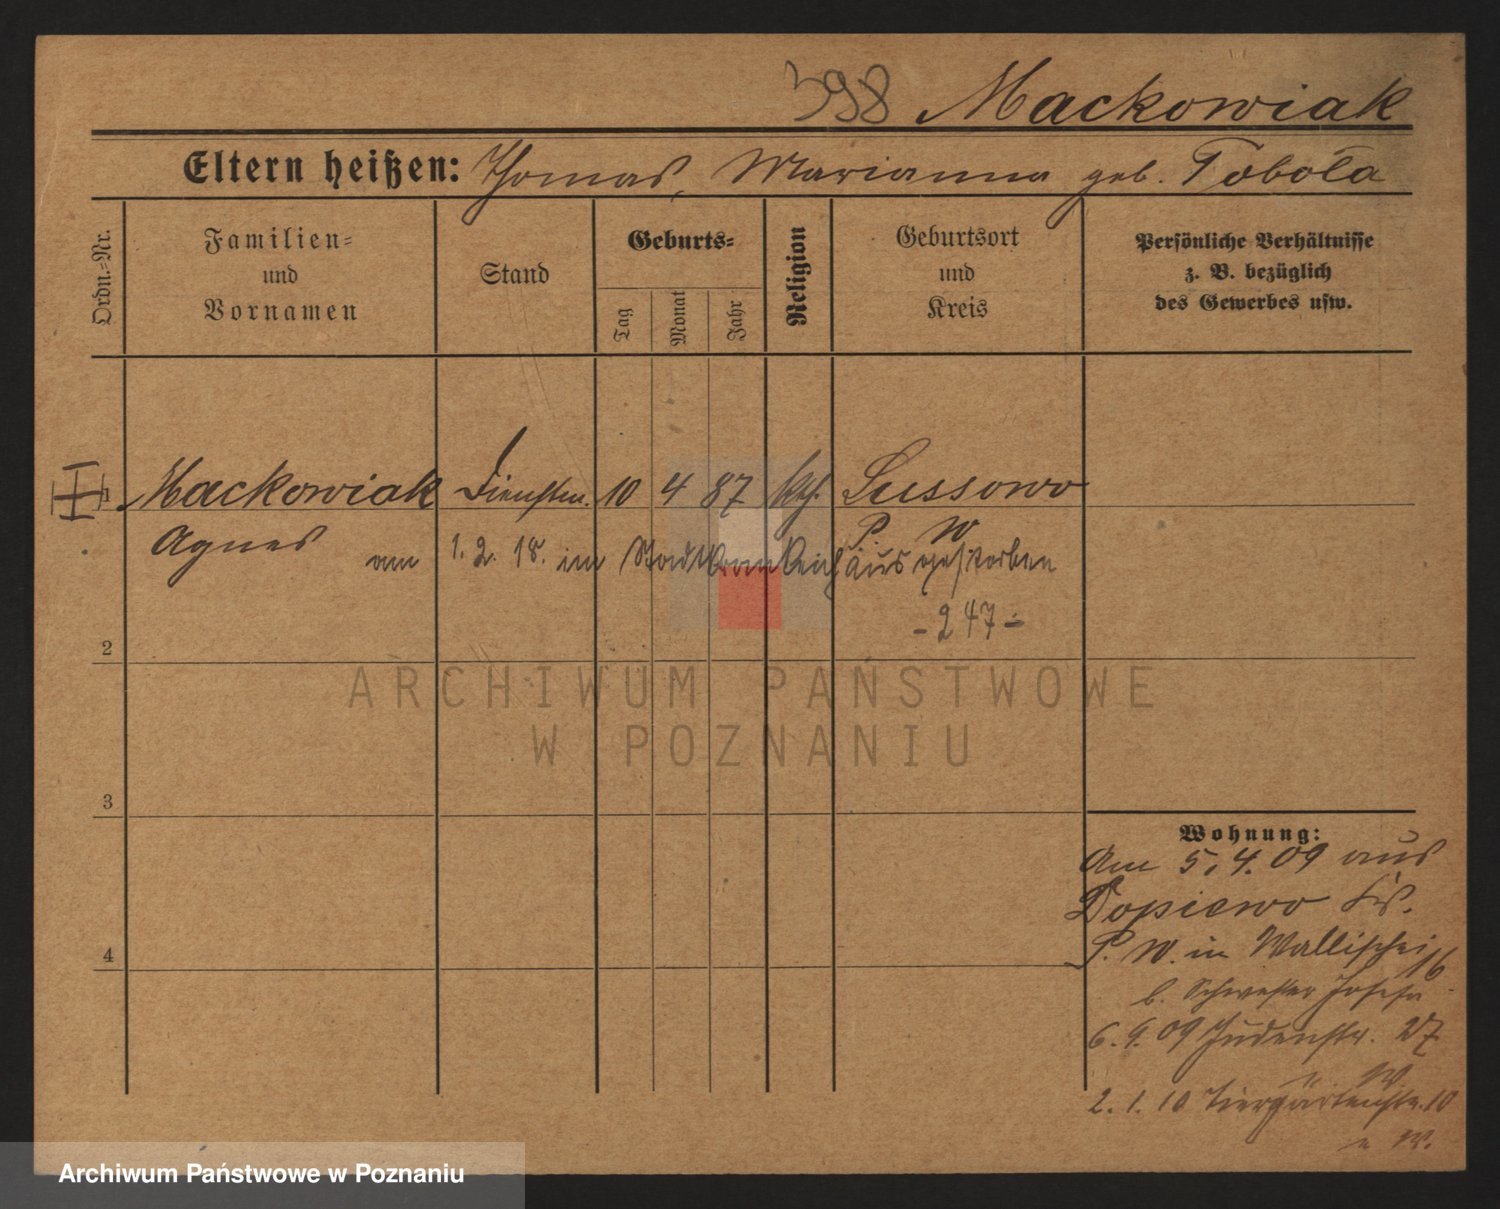 398 Mackowiak
Eltern heißen: Thomas, Marianna geb. Tobola
Ordn.-Nr.
Familien-
und
Vornamen
Stand
Geburts-
Tag
Monat
Jahr
Religion
Geburtsort
und
Kreis
Persönliche Verhältnisse
z. B. bezüglich
des Gewerbes usw.
1 Mackowiak Dienstm. 10 4 87 kth. Sussowo
Agnes P. W
am 1. 2. 18. im Stadtkrankenhaus gestorben
- 247 -
2
ARCHIWUM PAŃSTWOWE
W POZNANIU
3
4
Wohnung:
Am 5. 4. 09 aus
Dopiewo Krs.
P. W. in Wallischei 16
b. Schwester Josefa
6. 9. 09 Judenstr. 27
W.
2. 1. 10 Tiergartenstr. 10
W.
Archiwum Państwowe w Poznaniu